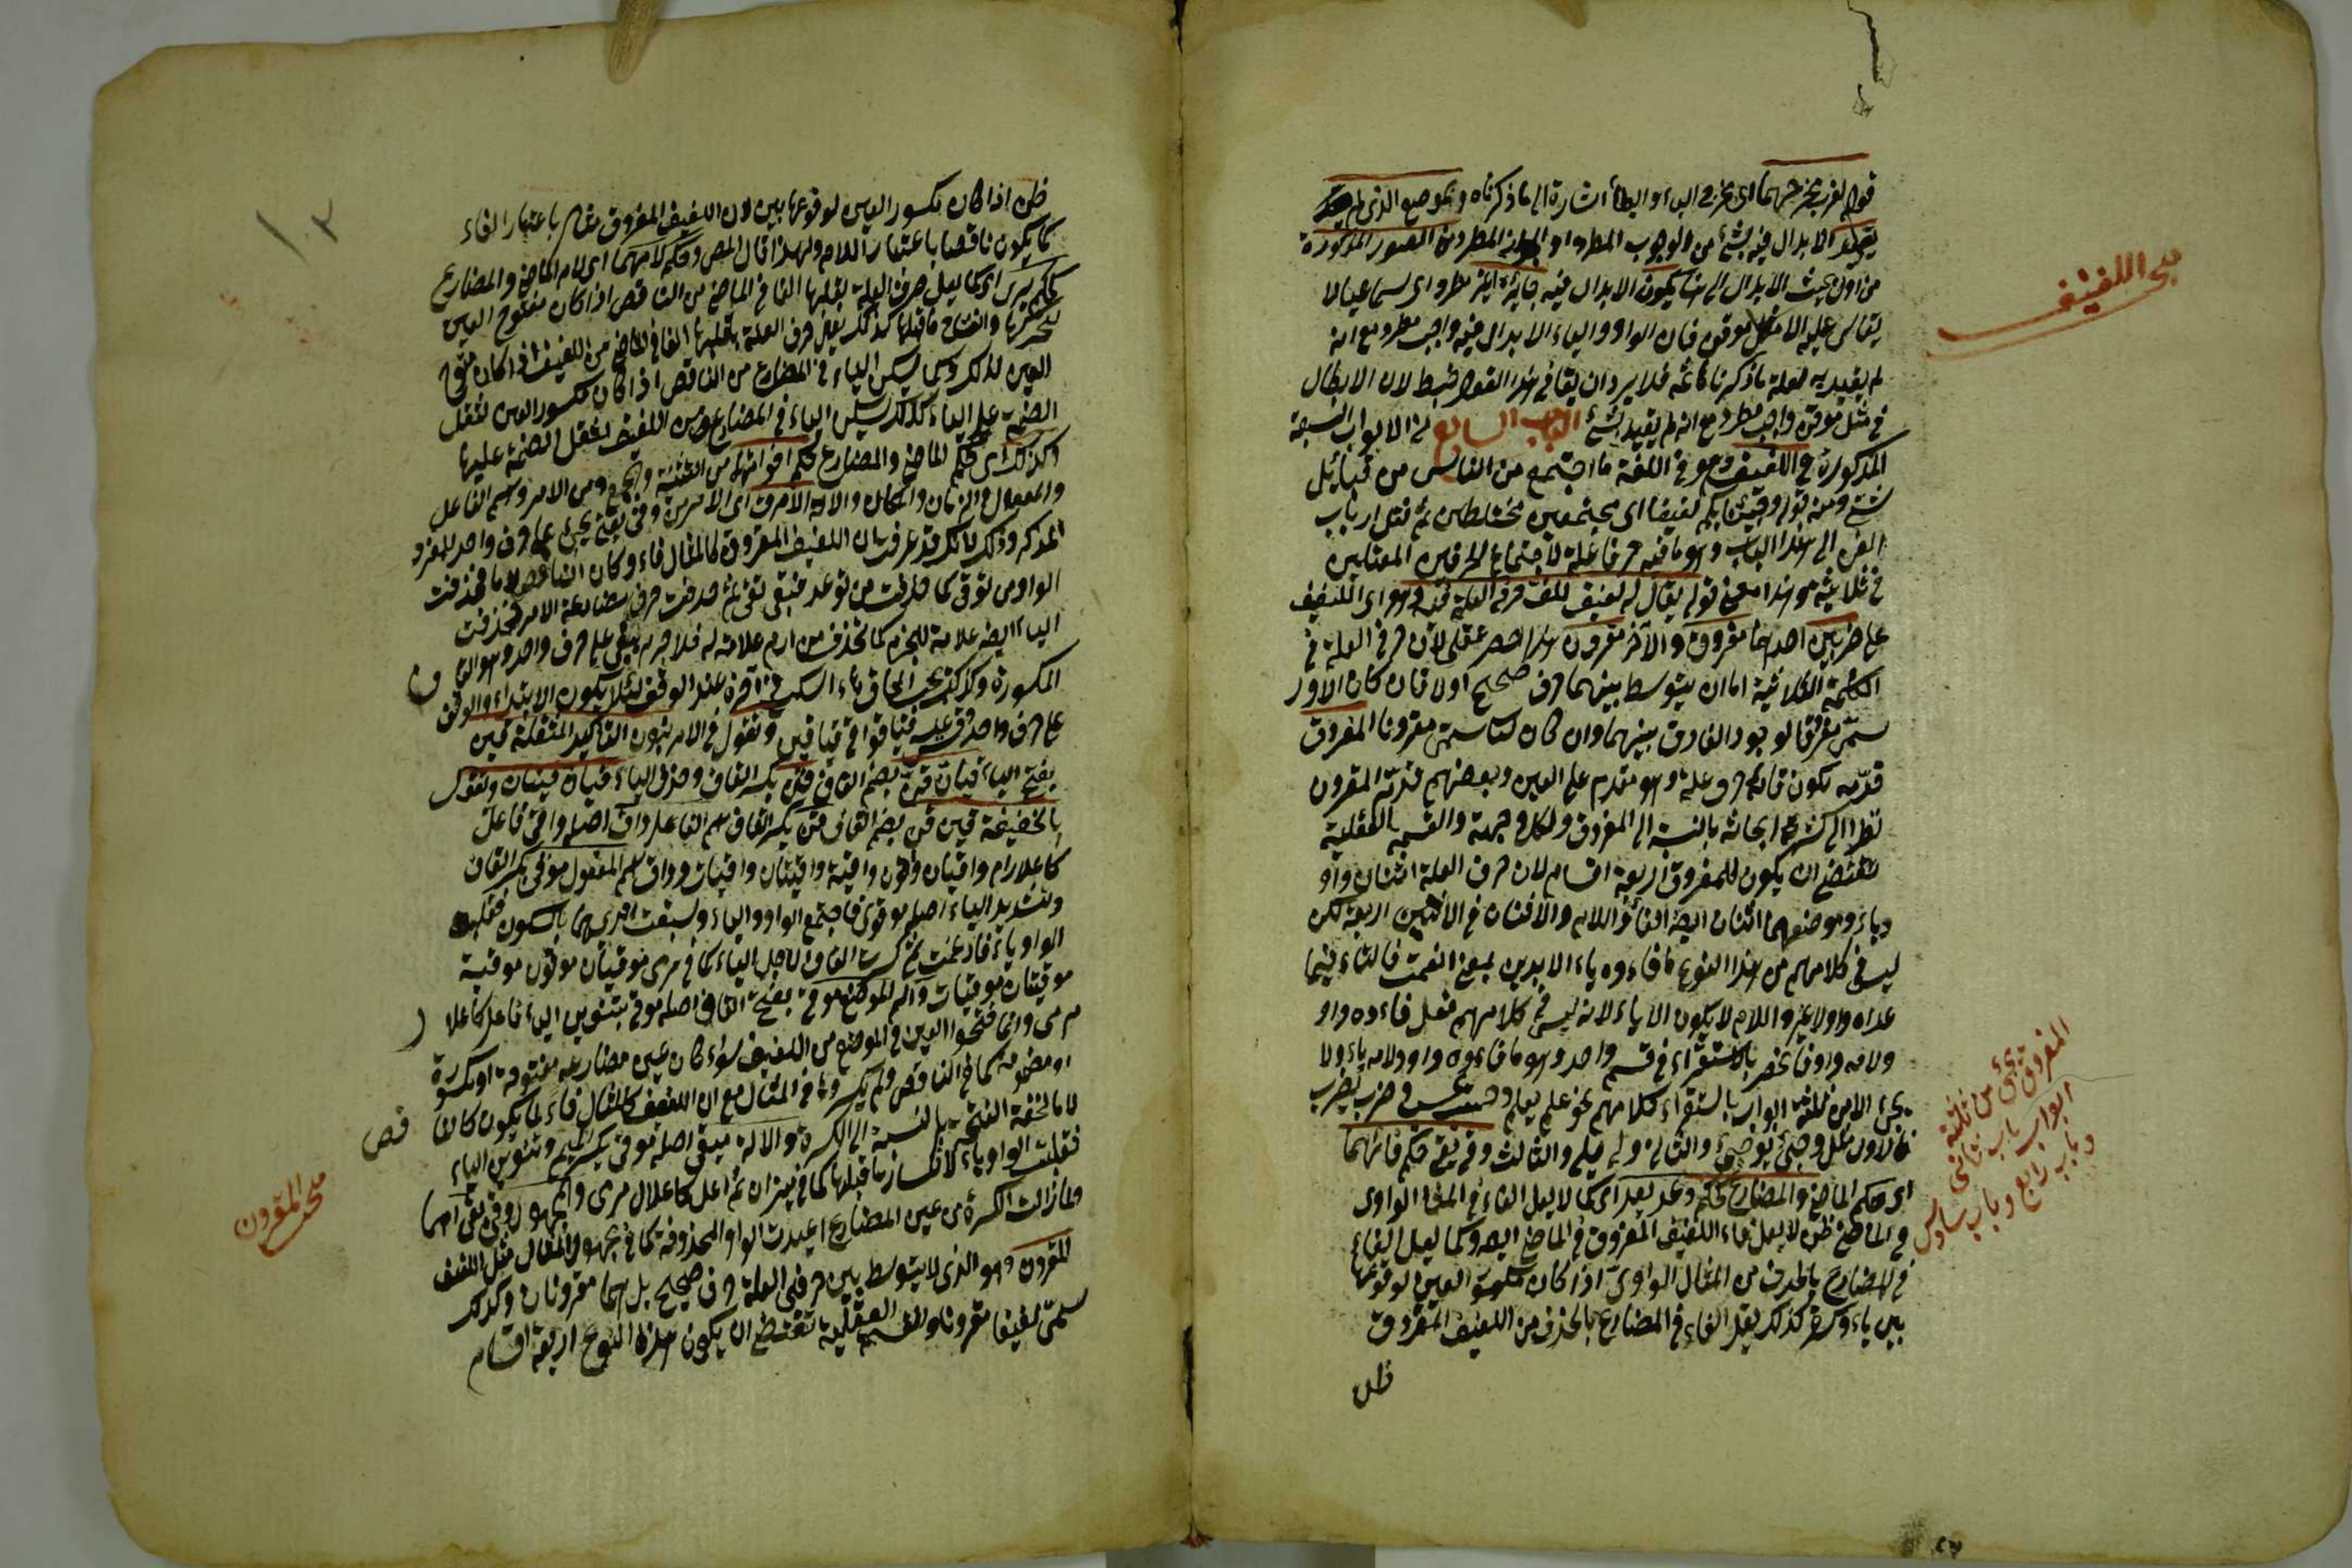 مبحث اللفيف
قوله لقرب مخرجهما اى مخرج الياء والطاء اشارة الى ما ذكرناه وبموضع الذى لم
يقيد الابدال فيه بشئ من الوجوب المطرد او المطرد من الصور المذكورة
من اول بحث الابدال الى هنا يكون الابدال فيه جائزا غير مطرد اى سماعيا لا
يقاس عليه الا مثل موقن فان الواو والياء الابدال فيه واجب مطرد مع انه
لم يقيد به لعلة ما ذكرنا ثمه فلا يرد ان يقال فى هذا القول خبط لان الابدال
فى مثل موقن واجب مطرد مع انه لم يقيد بشئ الباب السابع من الابواب السبعة
المذكورة فى اللفيف وهو فى اللغة ما اجتمع من الناس من قبائل
شتى ومنه قوله وجئنا بكم لفيفا اى مجتمعين مختلطين ثم نقل ارباب
الفن الى هذا الباب وهو ما فيه حرفا علة لاجتماع الحرفين المعتلين
فى ثلاثيه هو هذا معنى قوله يقال له لفيف للف حرفى العلة فيه وهو اى اللفيف
على ضربين احدهما مفروق والآخر مقرون هذا الحصر عقلى لان حرفى العلة فى
الكلمة الثلاثية اما ان يتوسط بينهما حرف صحيح اولا فان كان الاول
سمى مفروقا لوجود الفارق بينهما وان كان الثانى سمى مقرونا المفروق
قدمه لكون فائه حرف علة وهو مقدم على العين وبعضهم قدم المقرون
نظرا الى كثرة ابحاثه بالنسبة الى المفروق ولكل وجهة والقسمة العقلية
تقتضى ان يكون للمفروق اربعة اقسام لان حرف العلة اثنان واو
وياء وموضعهما اثنان ايضا الفاء واللام والاثنان فى الاثنين اربعة لكن
ليس فى كلامهم من هذا النوع ما فاءه ياء الا يديت بمعنى انعمت فالفاء فيما
عداه واو لا غير واللام لا يكون الا ياء لانه ليس فى كلامهم فعل فاءه واو
ولامه واو فانحصر بالاستقراء فى قسم واحد وهو ما فاءه واو ولامه ياء ولا
يجئ الا من ثلثة ابواب باستقراء كلامهم نحو علم يعلم وحسب يحسب وضرب يضرب
فالاول مثل وجى يوجى والثانى ولى يلى والثالث وقى يقى فحكم فائهما
اى حكم الماضى والمضارع كحكم وعد يعد اى كما لا يعل الفاء فى المثال الواوى
فى الماضى لا يعل فاء اللفيف المفروق فى الماضى ايضا وكما يعل الفاء
فى المضارع بالحذف من المثال الواوى اذا كان مكسور العين لوقوعها
بين ياء وكسرة كذلك يعل الفاء فى المضارع بالحذف من اللفيف المفروق
المفروق يجئ من ثلثة
ابواب باب ثانى
وباب رابع وباب سادس
اذا كان مكسور العين لوقوعها بين لان اللفيف المفروق مثال باعتبار الفاء
كما يكون ناقصا باعتبار اللام ولهذا قال المص وحكم لامهما اى لام الماضى والمضارع
كحكم يرمى اى كما يعل حرف العلة بقلبها الفا فى الماضى من الناقص اذا كان مفتوح العين
لتحركها وانفتاح ما قبلها كذلك يعل حرف العلة بقلبها الفا فى الماضى من اللفيف اذا كان مفتوح
العين لذلك وكما يسكن الياء فى المضارع من الناقص اذا كان مكسور العين لثقل
الضمة على الياء كذلك يسكن الياء فى المضارع من اللفيف لثقل الضمة عليها
وكذلك اى كحكم الماضى والمضارع حكم اخواتهما من التثنية والجمع ومن الامر واسم الفاعل
والمفعول والزمان والمكان والآلة الامر ق اى الامر من وقى يقى يجئ على حرف واحد للمفرد
المذكر وذلك لانك قد عرفت ان اللفيف المفروق كالمثال فاء وكان الناقص لاما فحذفت
الواو من توقى كما حذفت من توعد فبقى تقى ثم حذفت حرف مضارعة الامر فحذفت
الياء ايضا علامة للجزم كما تحذف من ارم علامة له فلا جرم بقى على حرف واحد وهو القاف
المكسورة ولكن يجب الحاق هاء السكت فى اخره عند الوقف لئلا يكون الابتداء والوقف
على حرف واحد وق عليه قيا قوا قى قيا قين وتقول فى الامر بنون التأكيد المثقلة قين
بفتح الياء قيان قن بضم القاف قن بكسر القاف وحذف الياء قيان قينان وتقول
بالخفيفة قين قن بضم القاف قن بكسر القاف اسم الفاعل واق اصله واقى فاعل
كاعلال رام واقيان واقون واقية واقيتان واقيات وواق اسم المفعول موقى بكسر القاف
وتشديد الياء اصله موقوى فاجتمع الواو والياء وسبقت احديهما بالسكون فقلبت
الواو ياء فادغمت ثم كسرت القاف لاجل الياء كما فى مرمى موقيان موقيون موقية
موقيتان موقيات واسم الموضع موقى بفتح القاف اصله موقى بتنوين الياء فاعل كاعلال
مرمى وانما فتحوا العين فى الموضع من اللفيف سواء كان عين مضارعه مفتوحة او مكسورة
او مضمومة كما فى الناقص ولم يكسروها فى المثال مع ان اللفيف كالمثال فاء لما يكون كالناقص
لاما لخفة الفتحة بالنسبة الى الكسرة والآلة ميقى اصله موقى بكسر الميم وتنوين الياء
فقلبت الواو ياء لانكسار ما قبلها كما فى ميزان ثم اعل كاعلال مرمى والمجهول وقى يوقى
ولما زالت الكسرة من عين المضارع اعيدت الواو المحذوفة كما فى مجهول المثال مثل اللفيف
المقرون وهو الذى لا يتوسط بين حرفى العلة حرف صحيح بل هما مقرونان وكذلك
سمى لفيفا مقرونا والقسمة العقلية تقتضى ان يكون هذا النوع اربعة اقسام
مبحث المقرون